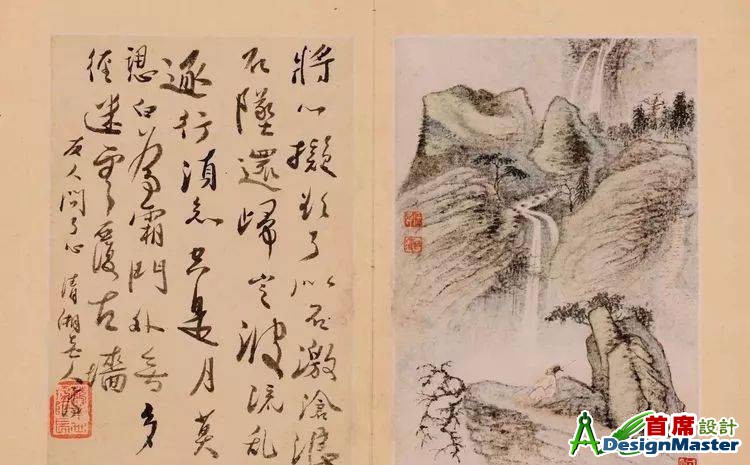 將心擬欲了以石激滄浪
石墜還歸定波流亂
逐行須只是月莫
認白為霜門外無多
徑迷雲覆古墻
友人問了心 清湘老人
首席設計
DesignMaster